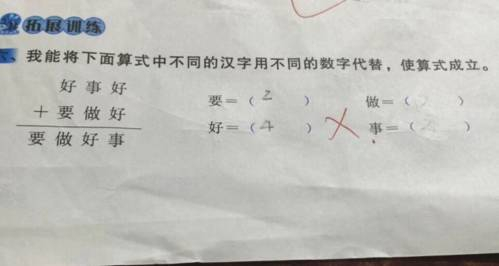 拓展训练
我能将下面算式中不同的汉字用不同的数字代替，使算式成立。
好 事 好
+ 要 做 好
要 做 好 事
要＝（ 2 ） 做＝（ ）
好＝（ 4 ） 事＝（ ）